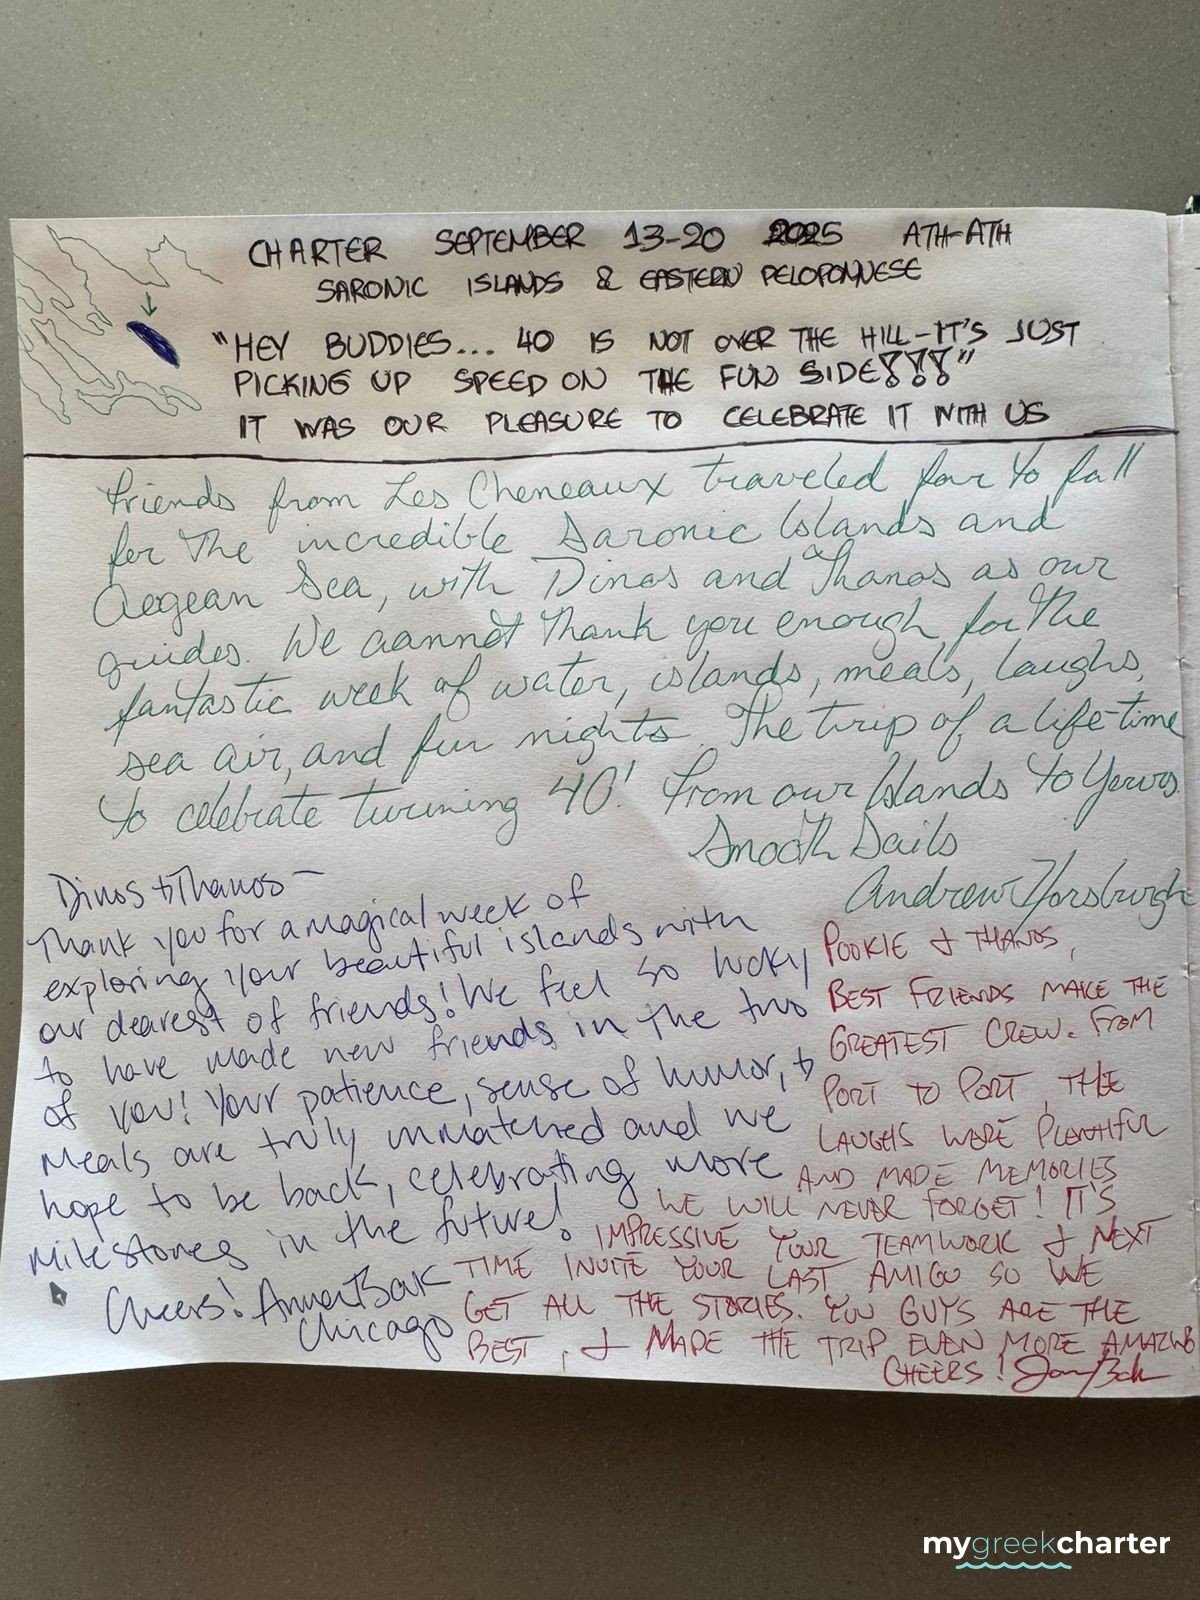 CHARTER SEPTEMBER 13-20 2025 ATH-ATH
SARONIC ISLANDS & EASTERN PELOPONNESE
"HEY BUDDIES... 40 IS NOT OVER THE HILL-IT'S JUST
PICKING UP SPEED ON THE FUN SIDE!!!"
IT WAS OUR PLEASURE TO CELEBRATE IT WITH US
Friends from Les Cheneaux traveled far to fall
for the incredible Saronic Islands and
Aegean Sea, with Dinos and Thanos as our
guides. We cannot thank you enough for the
fantastic week of water, islands, meals, laughs,
sea air, and fun nights. The trip of a life-time
to celebrate turning 40! From our Islands to Yours.
Smooth Sails
Andrew Horsburgh
Dinos & Thanos-
Thank you for a magical week of
exploring your beautiful islands with
our dearest of friends! We feel so lucky
to have made new friends in the two
of you! Your patience, sense of humor, &
meals are truly unmatched and we
hope to be back, celebrating more
milestones in the future!
Cheers! Anna Bak
Chicago
POOKIE & THANOS,
BEST FRIENDS MAKE THE
GREATEST CREW. FROM
PORT TO PORT, THE
LAUGHS WERE PLENTIFUL
AND MADE MEMORIES
WE WILL NEVER FORGET! IT'S
IMPRESSIVE YOUR TEAMWORK & NEXT
TIME INVITE YOUR LAST AMIGO SO WE
GET ALL THE STORIES. YOU GUYS ARE THE
BEST, & MADE THE TRIP EVEN MORE AMAZING
CHEERS!
mygreekcharter